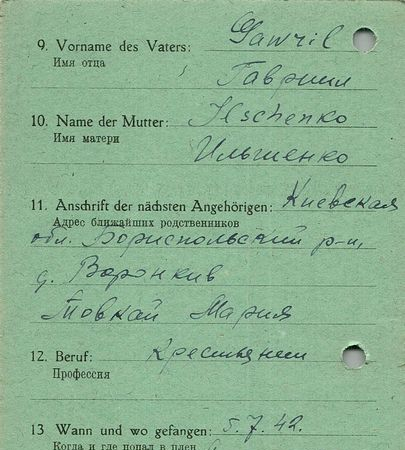 9. Vorname des Vaters: Gawril
Имя отца
Гавриил
10. Name der Mutter: Ilschenko
Имя матери
Ильшенко
11. Anschrift der nächsten Angehörigen: Киевская
Адрес ближайших родственников
обл. Бориспольский р-н,
д. Воронкив
Товкай Мария
12. Beruf: Крестьянин
Профессия
13 Wann und wo gefangen: 5.7.42.
Когда и где попал в плен